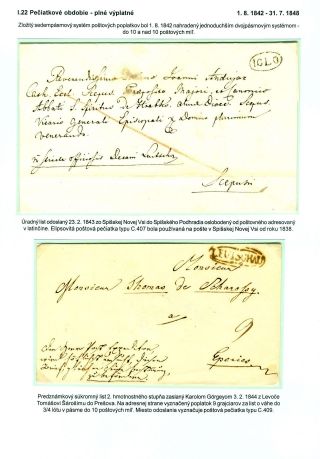 I.22 Pečiatkové obdobie - plné výplatné
1. 8. 1842 - 31. 7. 1848
Zložitý sedempásmový systém poštových poplatkov bol 1. 8. 1842 nahradený jednoduchším dvojpásmovým systémom -
do 10 a nad 10 poštových míľ.
IGLO
Reverendissimo Domino Joanni
Cath. Eccl. Scepus Praeposito Majori et Canonico
Abbati S. Spiritus de
Vicario Generali Episcopali et Domino plurimum
venerando
Scepusii
Úradný list odoslaný 23. 2. 1843 zo Spišskej Novej Vsi do Spišského Podhradia oslobodený od poštovného adresovaný
v latinčine. Elipsovitá poštová pečiatka typu C.407 bola používaná na pošte v Spišskej Novej Vsi od roku 1838.
LEUTSCHAU
Monsieur
Monsieur Thomas de
a
9
Eperies
Predznámkový súkromný list 2. hmotnostného stupňa zaslaný Karolom Görgeyom 3. 2. 1844 z Levoče
Tomášovi Šárošimu do Prešova. Na adresnej strane vyznačený poplatok 9 grajciarov za list o váhe do
3/4 lótu v pásme do 10 poštových míľ. Miesto odoslania vyznačuje poštová pečiatka typu C.409.